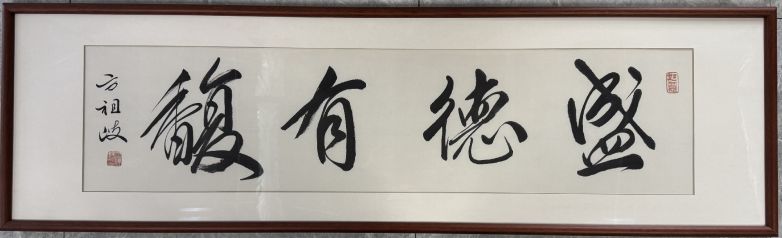 盛德有馥
方祖岐